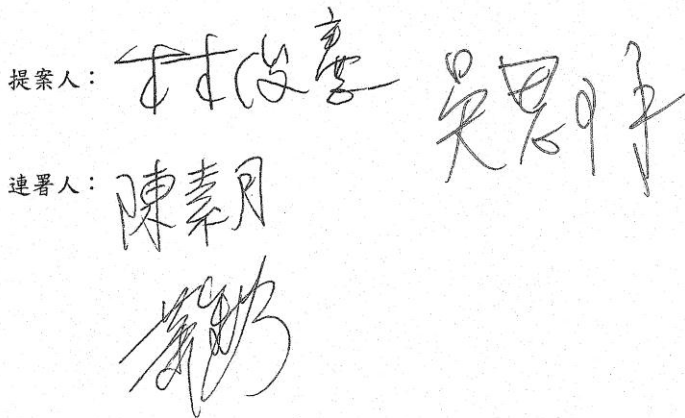 提案人：林俊憲 吳思瑤
連署人：陳素月